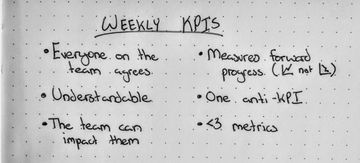 WEEKLY KPIS
• Everyone on the
team agrees
• Understandable
• The team can
impact them
• Measured forward
progress. ( not )
• One anti-KPI
• <3 metrics